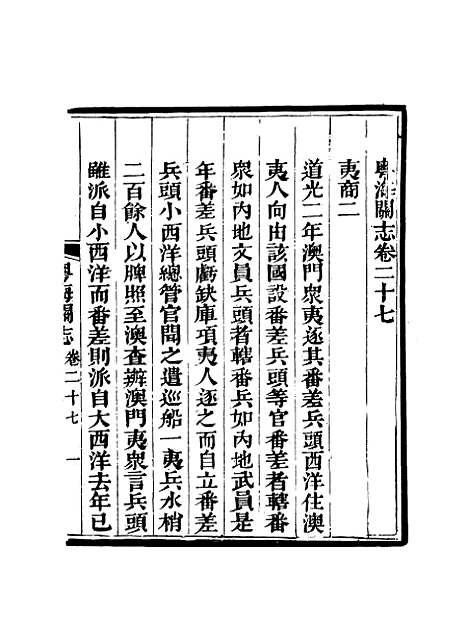 粵海關志卷二十七
夷商二
道光二年澳門眾夷逐其番差兵頭西洋住澳
夷人向由該國設番差兵頭等官番差者轄番
眾如內地文員兵頭者轄番兵如內地武員是
年番差兵頭虧缺庫項夷人逐之而自立番差
兵頭小西洋總管官聞之遣巡船一夷兵水梢
二百餘人以牌照至澳查辦澳門夷眾言兵頭
雖派自小西洋而番差則派自大西洋去年已
粵海關志 卷二十七 一